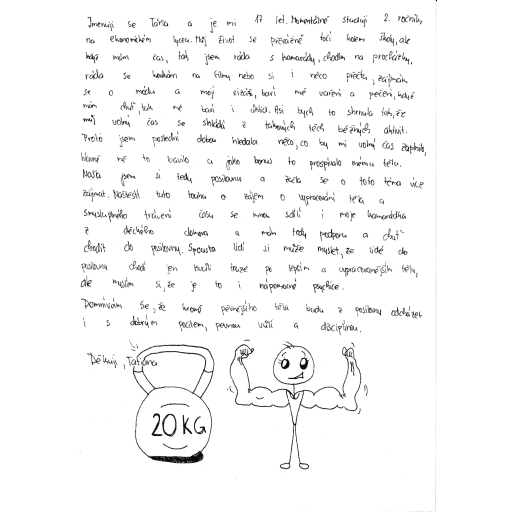 Jmenuji se Táňa a je mi 17 let. Momentálně studuji 2. ročník,
na ekonomickém lyceu. Můj život se převážně točí kolem školy, ale
když mám čas, tak jsem ráda s kamarády, chodím na procházky,
ráda se koukám na filmy nebo si i něco přečtu, zajímám
se o módu a moji vizáž, baví mě vaření a pečení, když
mám chuť, tak mě baví i úklid. Asi bych to shrnula tak, že
můj volný čas se skládá z takových těch běžných aktivit.
Proto jsem poslední dobou hledala něco, co by mi volný čas zaplnilo,
hlavně mě to bavilo a jako bonus to prospívalo mému tělu.
Našla jsem si tedy posilovnu a začla se o toto téma více
zajímat. Naštěstí tuto touhu o zájem o vypracování těla a
smysluplného trávení času se mnou sdílí i moje kamarádka
z dětského domova a mám tedy podporu a chuť
chodit do posilovny. Spousta lidí si může myslet, že lidé do
posilovny chodí jen kvůli touze po lepším a vypracovanějším těle,
ale myslím si, že je to i nápomocné psychice.
Domnívám se, že kromě pevnějšího těla budu z posilovny odcházet
i s dobrým pocitem, pevnou vůlí a disciplínou.
Děkuji, Tatiana
20 KG